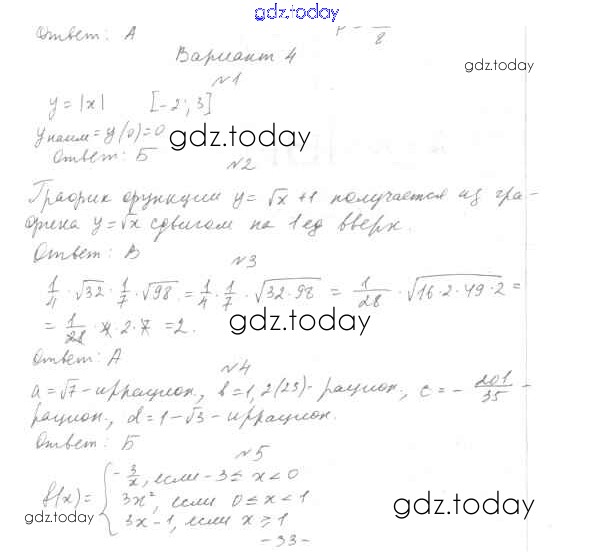 gdz.today
Ответ: А
8
Вариант 4
gdz.today
№1
y = |x| [-2; 3]
yнаим = y(0) = 0
gdz.today
Ответ: Б
№2
График функции y = √x + 1 получается из гра-
фика y = √x сдвигом на 1 ед вверх.
Ответ: В
№3
1/4 · √32 · 1/7 · √98 = 1/4 · 1/7 · √(32·98) = 1/28 · √(16·2·49·2) =
= 1/28 · 4 · 2 · 7 = 2.
gdz.today
Ответ: А
№4
a = √7 – иррацион., b = 1,2(23) – рацион., c = – 201/35 –
рацион., d = 1 – √3 – иррацион.
Ответ: Б
№5
f(x) = { – 3/x, если –3 ≤ x < 0
3x², если 0 ≤ x < 1
3x – 1, если x ≥ 1
gdz.today
gdz.today
- 33 -